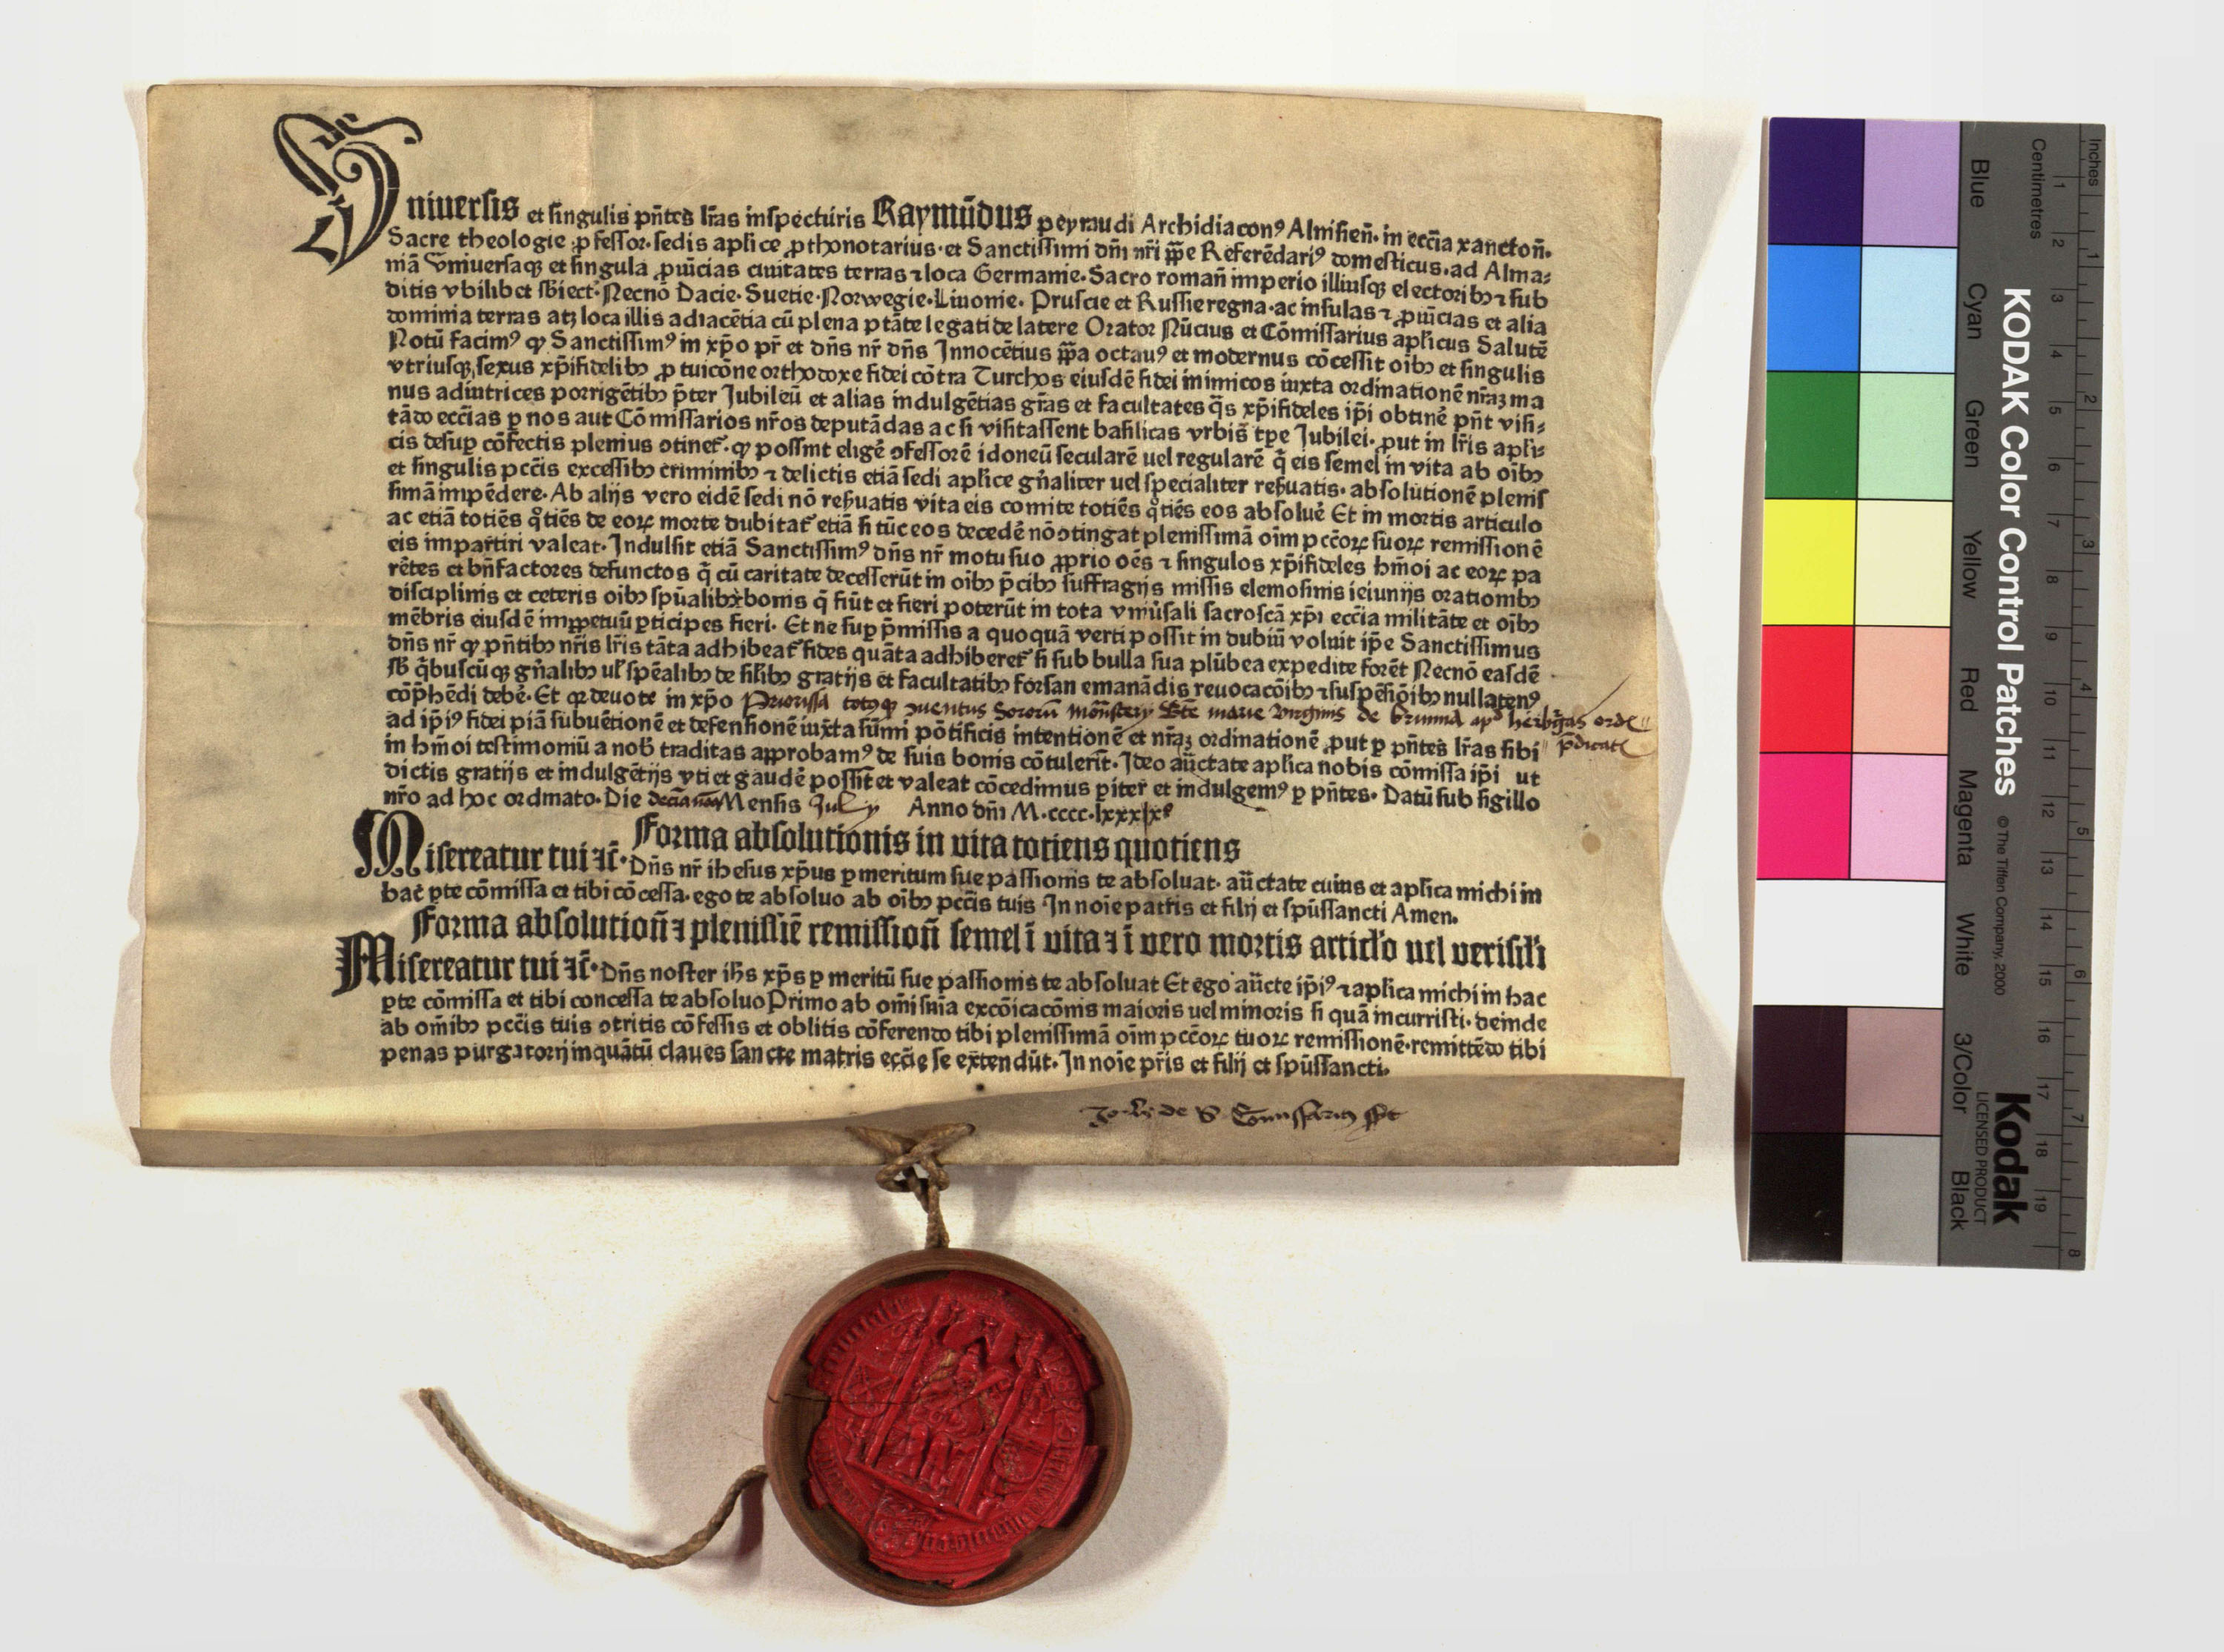 Uniuersis et singulis pn̄tes lr̄as inspecturis Raymūdus peyraudi Archidiaconꝰ Alnisien̄. in ecc̄ia xancton̄.
Sacre theologie ꝓfessor. sedis aplice ꝓthonotarius. et Sanctissimi dn̄i nr̄i ꝑpe Referēdariꝰ domesticus. ad Alma⸗
niā Vniuersaqꝫ et singula ꝓuīcias ciuitates terras ⁊ loca Germanie. Sacro roman̄ imperio illiusqꝫ electoribꝫ ⁊ sub
ditis vbilibet sbiect. Necnō Dacie. Suetie. Norwegie. Liuonie. Pruscie et Russie regna. ac insulas ⁊ ꝓuīcias et alia
dominia terras atqꝫ loca illis adiacētia cū plena ptāte legati de latere Orator Nūcius et Cōmissarius aplicus Salutē
Notū facimꝰ ꝙ Sanctissimꝰ in xp̄o pr̄ et dn̄s nr̄ dn̄s Innocētius ꝑpa octauꝰ et modernus cōcessit oībꝫ et singulis
vtriusqꝫ sexus xp̄ifidelibꝫ ꝓ tuicōne orthodoxe fidei cōtra Turchos eiusdē fidei inimicos iuxta ordinationē nr̄aꝫ ma
nus adiutrices porrigētibꝫ p̄ter Jubileū et alias indulgētias gr̄as et facultates qs̄ xp̄ifideles ip̄i obtinē pn̄t visi⸗
tādo ecc̄ias ꝑ nos aut Cōmissarios nr̄os deputādas ac si visitassent basilicas vrbis tp̄e Jubilei. ꝓut in lr̄is apli⸗
cis desuꝑ cōfectis plenius ↄtinet̄. ꝙ possint eligē ↄfessorē idoneū secularē uel regularē q̄ eis semel in vita ab oībꝫ
et singulis pcc̄is excessibꝫ criminibꝫ ⁊ delictis etiā sedi aplice gn̄aliter uel specialiter reẞuatis. absolutionē plenis
simā impēdere. Ab alijs vero eidē sedi nō reẞuatis vita eis comite totiēs q̊tiēs eos absoluē Et in mortis articulo
ac etiā totiēs q̊tiēs de eoꝝ morte dubitat̄ etiā si tūc eos decedē nō ↄtingat plenissimā oīm pcc̄oꝝ suoꝝ remissionē
eis impartiri valeat. Indulsit etiā Sanctissimꝰ dn̄s nr̄ motu suo ꝓprio oēs ⁊ singulos xp̄ifideles hmōi ac eoꝝ pa
rētes et bn̄factores defunctos q̄ cū caritate decesserūt in oībꝫ p̄cibꝫ suffragijs missis elemosinis ieiunijs orationibꝫ
disciplinis et ceteris oībꝫ spūalibꝫ bonis q̄ fiūt et fieri poterūt in tota vniūsali sacroscā xp̄i ecc̄ia militāte et oībꝫ
mēbris eiusdē imꝑpetuū ꝑticipes fieri. Et ne suꝑ p̄missis a quoquā verti possit in dubiū voluit ip̄e Sanctissimus
dn̄s nr̄ ꝙ pn̄tibꝫ nr̄is lr̄is tāta adhibeat̄ fides quāta adhiberet̄ si sub bulla sua plūbea expedite forēt Necnō easdē
sb q̄buscūqꝫ gn̄alibꝫ ul̄ spēalibꝫ de silibꝫ gratijs et facultatibꝫ forsan emanādis reuocacōibꝫ ⁊ suspēsiōibꝫ nullatenꝰ
cōp̄hēdi debē. Et qꝛ deuote in xp̄o Priorissa totusqꝫ conuentus Sororū monasterij Bte marie virginis de Brunna apd heibgas ordīs
p̄dicat
ad ip̄iꝰ fidei piā subuētionē et defensionē iuxta sūmi pōtificis intentionē et nr̄aꝫ ordinationē ꝓut ꝑ pn̄tes lr̄as sibi
in hmōi testimoniū a nob̄ traditas approbamꝰ de suis bonis cōtulerit. Ideo auctate aplica nobis cōmissa ip̄i ut
dictis gratijs et indulgētijs vti et gaudē possit et valeat cōcedimus ꝑiter et indulgemꝰ ꝑ pn̄tes. Datū sub sigillo
nr̄o ad hoc ordinato. Die decīa nona Mensis July Anno dn̄i M.cccc.lxxxixº
Forma absolutionis in vita totiens quotiens
Misereatur tui ⁊c̄. Dn̄s nr̄ ihesus xp̄us ꝑ meritum sue passionis te absoluat. auctate cuius et aplica michi in
hac ꝑte cōmissa et tibi cōcessa. ego te absoluo ab oībꝫ pcc̄is tuis In noīe patris et filij et spūssancti Amen.
Forma absolution̄ ⁊ plenissiē remission̄ semel ī vita ⁊ ī vero mortis articl̄o uel verisil̄i
Misereatur tui ⁊c̄. Dn̄s noster ihs̄ xp̄s ꝑ meritū sue passionis te absoluat Et ego aucte ip̄iꝰ ⁊ aplica michi in hac
ꝑte cōmissa et tibi concessa te absoluo Primo ab om̄i snīa excōicacōnis maioris uel minoris si quā incurristi. deinde
ab om̄ibꝫ pcc̄is tuis ↄtritis cōfessis et oblitis cōferendo tibi plenissimā oīm pcc̄oꝝ tuoꝝ remissionē. remittēdo tibi
penas purgatorij inquātū claues sancte matris ecc̄ie se extendūt. In noīe pr̄is et filij et spūssancti.
de S Comissariꝰ sst
KODAK Color Control Patches
© The Tiffen Company, 2000
Kodak
LICENSED PRODUCT
Blue Cyan Green Yellow Red Magenta White 3/Color Black
Inches 1 2 3 4 5 6 7 8
Centimetres 1 2 3 4 5 6 7 8 9 10 11 12 13 14 15 16 17 18 19